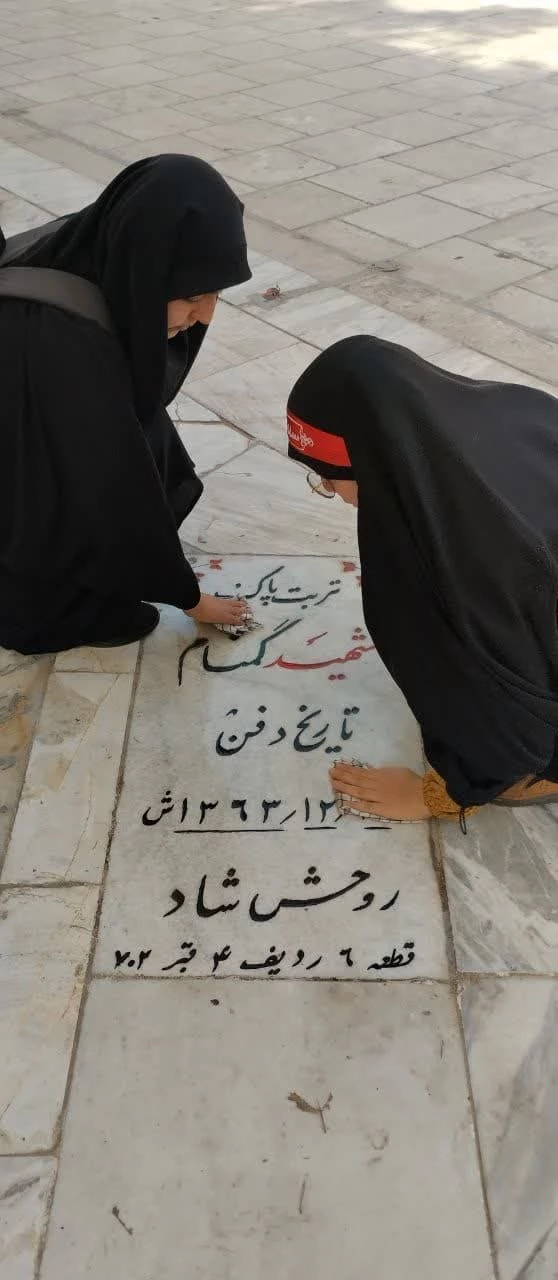 تربت پاک
شهید گمنام
تاریخ دفن
۱۲/ ۱۳۶۳ش
روحش شاد
قطعه ۶ ردیف ۴ قبر ۷۰۲